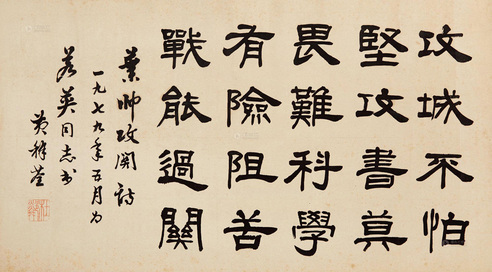 攻城不怕
堅攻書莫
畏難科學
有險阻苦
戰能過關
葉帥攻関詩
一九七九年五月为
若英同志书
黄稚荃